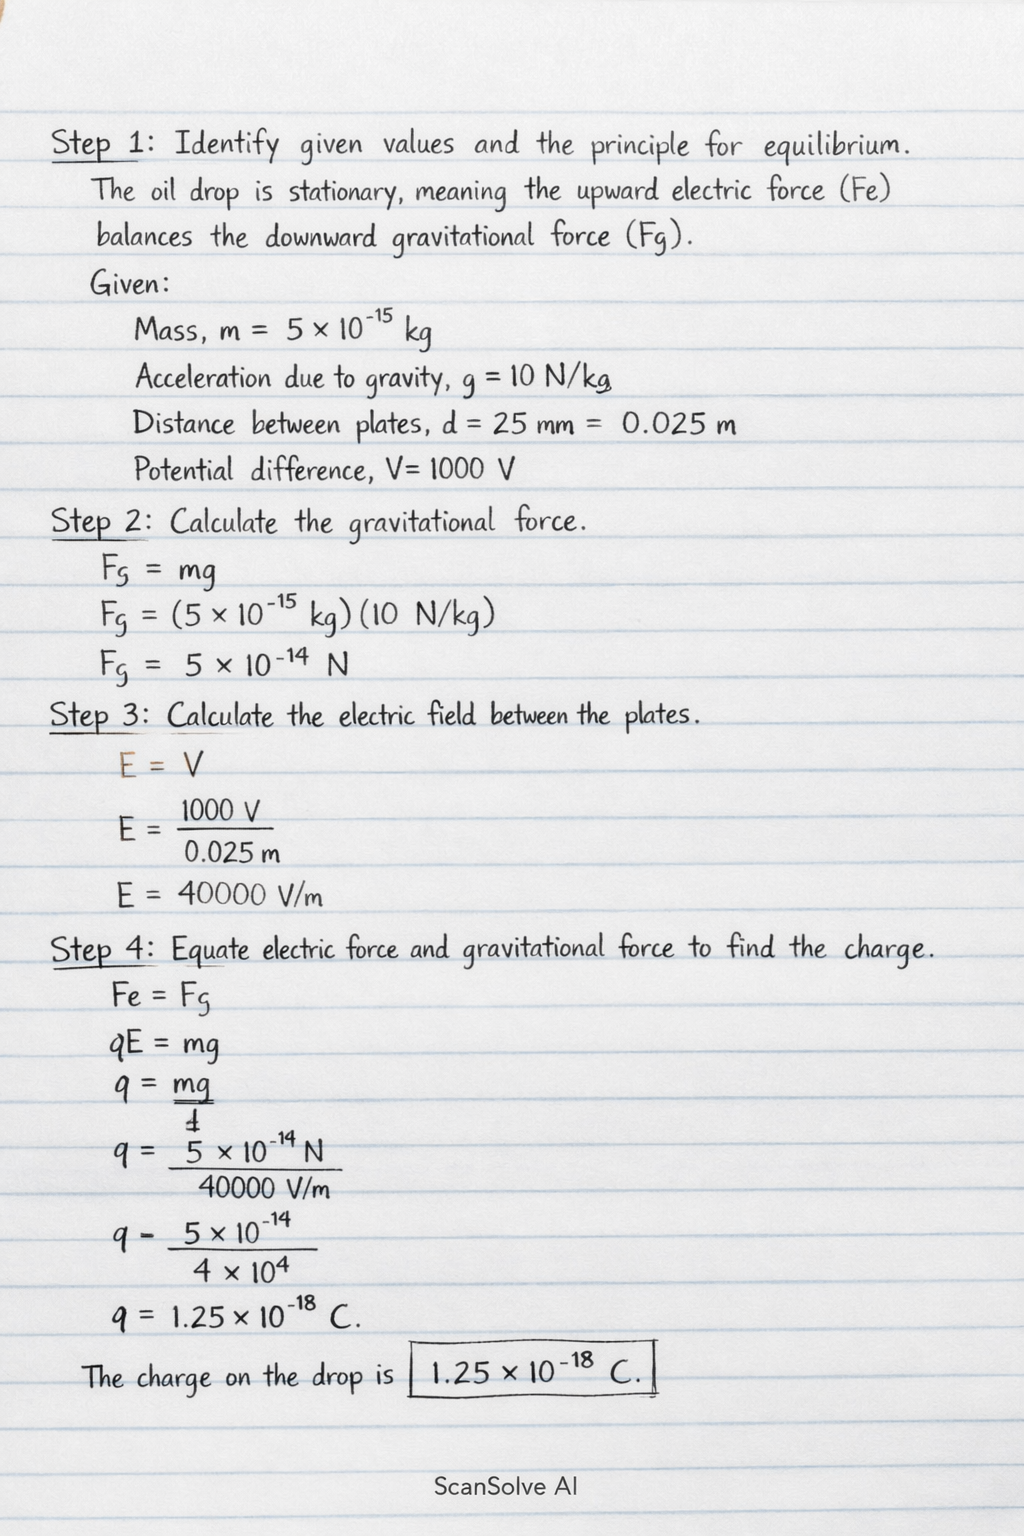 Step 1: Identify given values and the principle for equilibrium.
The oil drop is stationary, meaning the upward electric force (Fe)
balances the downward gravitational force (Fg).
Given:
Mass, m = 5 × 10⁻¹⁵ kg
Acceleration due to gravity, g = 10 N/kg
Distance between plates, d = 25 mm = 0.025 m
Potential difference, V= 1000 V
Step 2: Calculate the gravitational force.
Fg = mg
Fg = (5 × 10⁻¹⁵ kg) (10 N/kg)
Fg = 5 × 10⁻¹⁴ N
Step 3: Calculate the electric field between the plates.
E = V
E = 1000 V / 0.025 m
E = 40000 V/m
Step 4: Equate electric force and gravitational force to find the charge.
Fe = Fg
qE = mg
q = mg / d
q = 5 × 10⁻¹⁴ N / 40000 V/m
q - 5 × 10⁻¹⁴ / 4 × 10⁴
q = 1.25 × 10⁻¹⁸ C.
The charge on the drop is 1.25 × 10⁻¹⁸ C.
ScanSolve AI